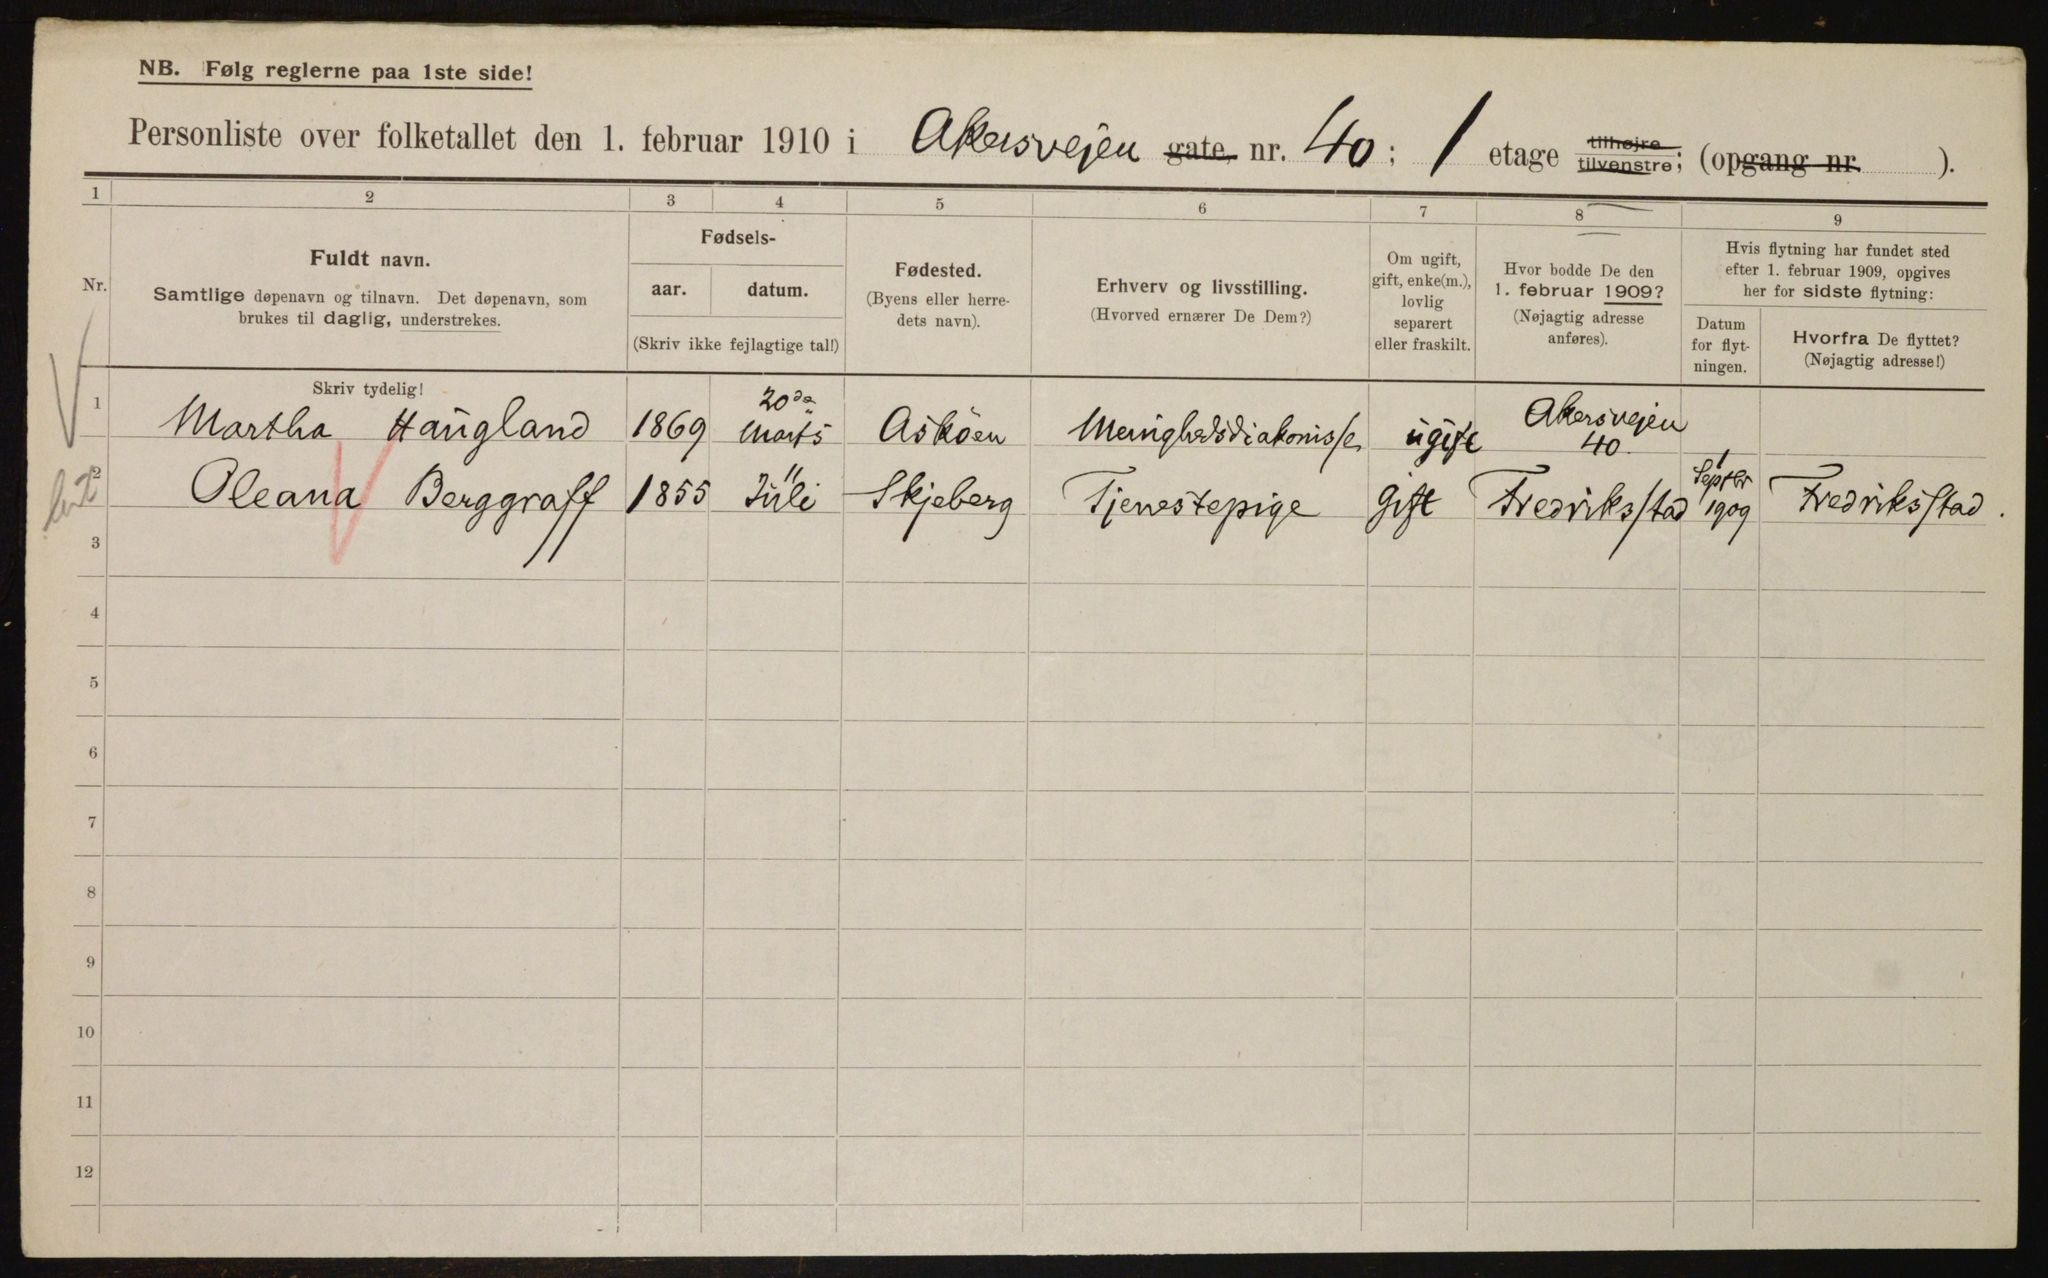 NB. Følg reglerne paa 1ste side!
Personliste over folketallet den 1. februar 1910 i Akersvejen gate, nr. 40; 1 etage tilhøjre tilvenstre; (opgang nr. ).
1 2 3 4 5 6 7 8 9
Nr.
Fuldt navn.
Samtlige døpenavn og tilnavn. Det døpenavn, som
brukes til daglig, understrekes.
Skriv tydelig!
Fødsels-
aar. datum.
(Skriv ikke fejlagtige tal!)
Fødested.
(Byens eller herre-
dets navn).
Erhverv og livsstilling.
(Hvorved ernærer De Dem?)
Om ugift,
gift, enke(m.),
lovlig
separert
eller fraskilt.
Hvor bodde De den
1. februar 1909?
(Nøjagtig adresse
anføres).
Hvis flytning har fundet sted
efter 1. februar 1909, opgives
her for sidste flytning:
Datum
for flyt-
ningen.
Hvorfra De flyttet?
(Nøjagtig adresse!)
1 Martha Haugland 1869 20de Marts Asköen Menighedsdiakonisse ugift Akersvejen 40.
2 Oleana Berggraff 1855 11 Juli Skjeberg Tjenestepige Gift Fredriksstad 1 Septbr 1909 Fredriksstad.
3
4
5
6
7
8
9
10
11
12